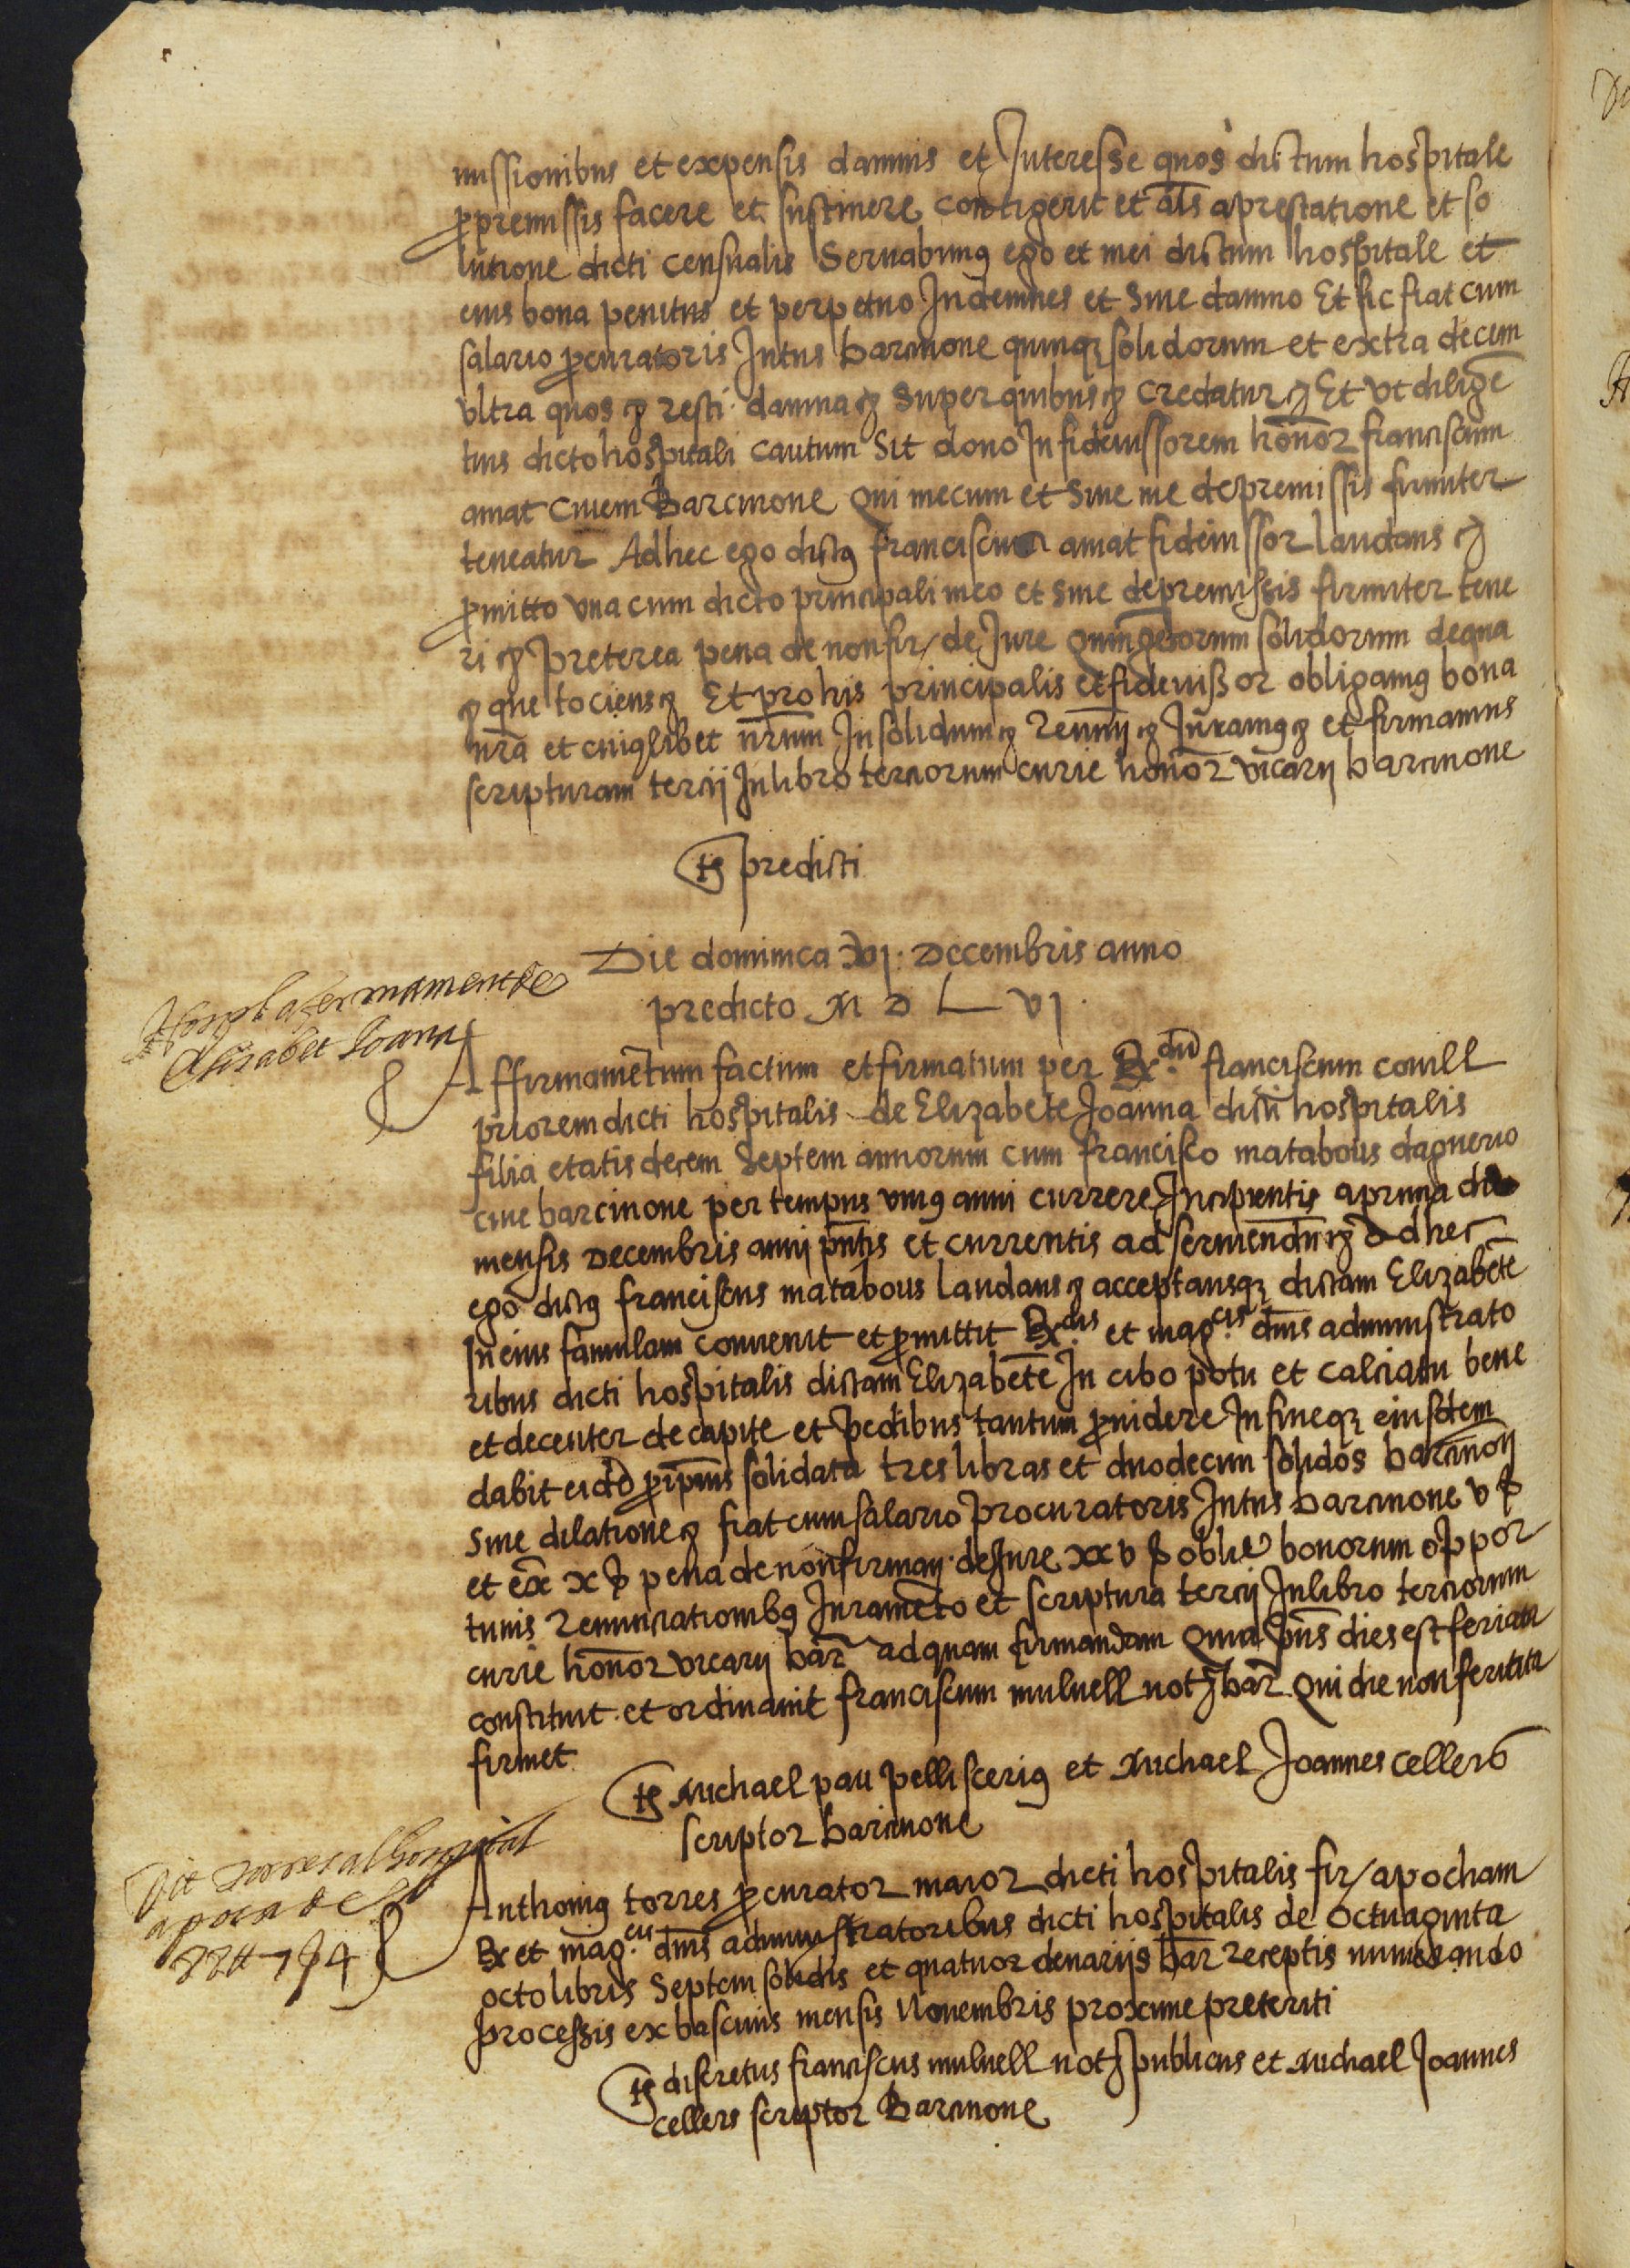 missionibus et expensis damnis et Interesse quos dictum hospitale
ꝓpremissis facere et sustinere contigerit et al̅s aprestatione et so
lutione dicti censualis Servabimꝰ ego et mei dictum hospitale et
eius bona penitus et perpetuo Indemnes et sine damno Et sic fiat cum
salario ꝓcuratoris Intus barcinone quinqꝫ solidorum et extra decem
ultra quos ꝛ resti. damna ꝛ super quibus ꝛ credatur ꝛ Et ut diligē
tius dicto hospitali cautum sit dono In fideiussorem honor franciscum
amat civem Barcinone qui mecum et sine me depremissis firmiter
teneatur Adhec ego dictꝰ franciscus amat fideiussor laudans ꝛ
ꝓmitto una cum dicto principali meo et sine depremissis firmiter tene
ri ꝛ preterea pena de non fir/ de Jure quingētorum solidorum de qua
ꝛ que tociens ꝛ Et pro his principalis et fideiussor obligamꝰ bona
nr̅a et cuiuslibet nr̅um In solidum ꝛ Renuncij ꝛ Juramꝰ ꝛ et firmamus
scripturam tercij In libro terciorum curie honor vicarij barcinone
tꝭ predicti
Die dominica xvj. Decembris anno
predicto M D L vj.
Hospl afermament de
Elisabet Joana
Affirmamētum factum et firmatum per Rx.dū franciscum covill
priorem dicti hospitalis de Elizabete Joanna dicti hospitalis
filia etatis decem septem annorum cum francisco matabous daguerio
cive barcinone per tempus uniꝰ anni currere Incipientis a prima die
mensis Decembris anni pn̅tis et currentis ad serviendū ꝛ Adhec
ego dictꝰ franciscus matabous laudans ꝛ acceptansqꝫ dictam Elizabetē
In eius famulam convenit et ꝓmittit Rx.dis et magcis. dn̅is administrato
ribus dicti hospitalis dictam Elizabetē In cibo potu et calciatu bene
et decenter de capite et pedibus tantum ꝓvidere In fineqꝫ eiusdem
dabit eidē solidata tres libras et duodecim solidos barcinoñ
Sine dilatione ꝛ fiat cum salario procuratoris Intus barcinone v ß
et ex̅ x ß pena de non firmañ. de Jure xxv ß oblie bonorum oppor
tunis Renunciationibꝰ Juramēto et scriptura tercij In libro terciorum
curie honor vicarij bar̅ ad quam firmandam quia pn̅s dies est feriata
constituit et ordinavit franciscum mulnell notꝫ bar̅ qui die non feriata
firmet
tꝭ Michael pau pelliscerius et Michael Joannes cellers
scriptor barcinone
apoca de
88 tt 7 ß 4
Anthoniꝰ torres ꝓcurator maior dicti hospitalis fir/ apocham
Rx et mag.cis dn̅is administratoribus dicti hospitalis de octuaginta
octo libris Septem solidis et quatuor denarijs bar̅ receptis numerando
processis ex bascinis mensis Novembris proxime preteriti
tꝭ discretus franciscus mulnell notꝫ publicus et Michael Joannes
cellers scriptor Barcinone